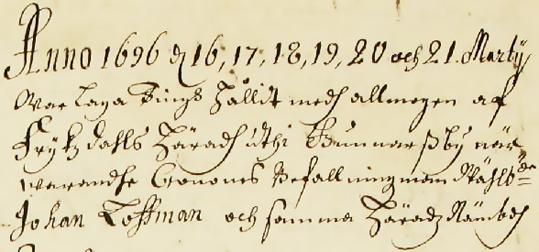 Anno 1696 d 16, 17, 18, 19, 20 och 21. Martij
War Laga Tingh hållit medh allmogen af
Frykzdahls häradh uthi Gunnarßby när-
warandhe Cronones Befallningzman Wählb:de
Johan Toffman och samma häradz Nämbd